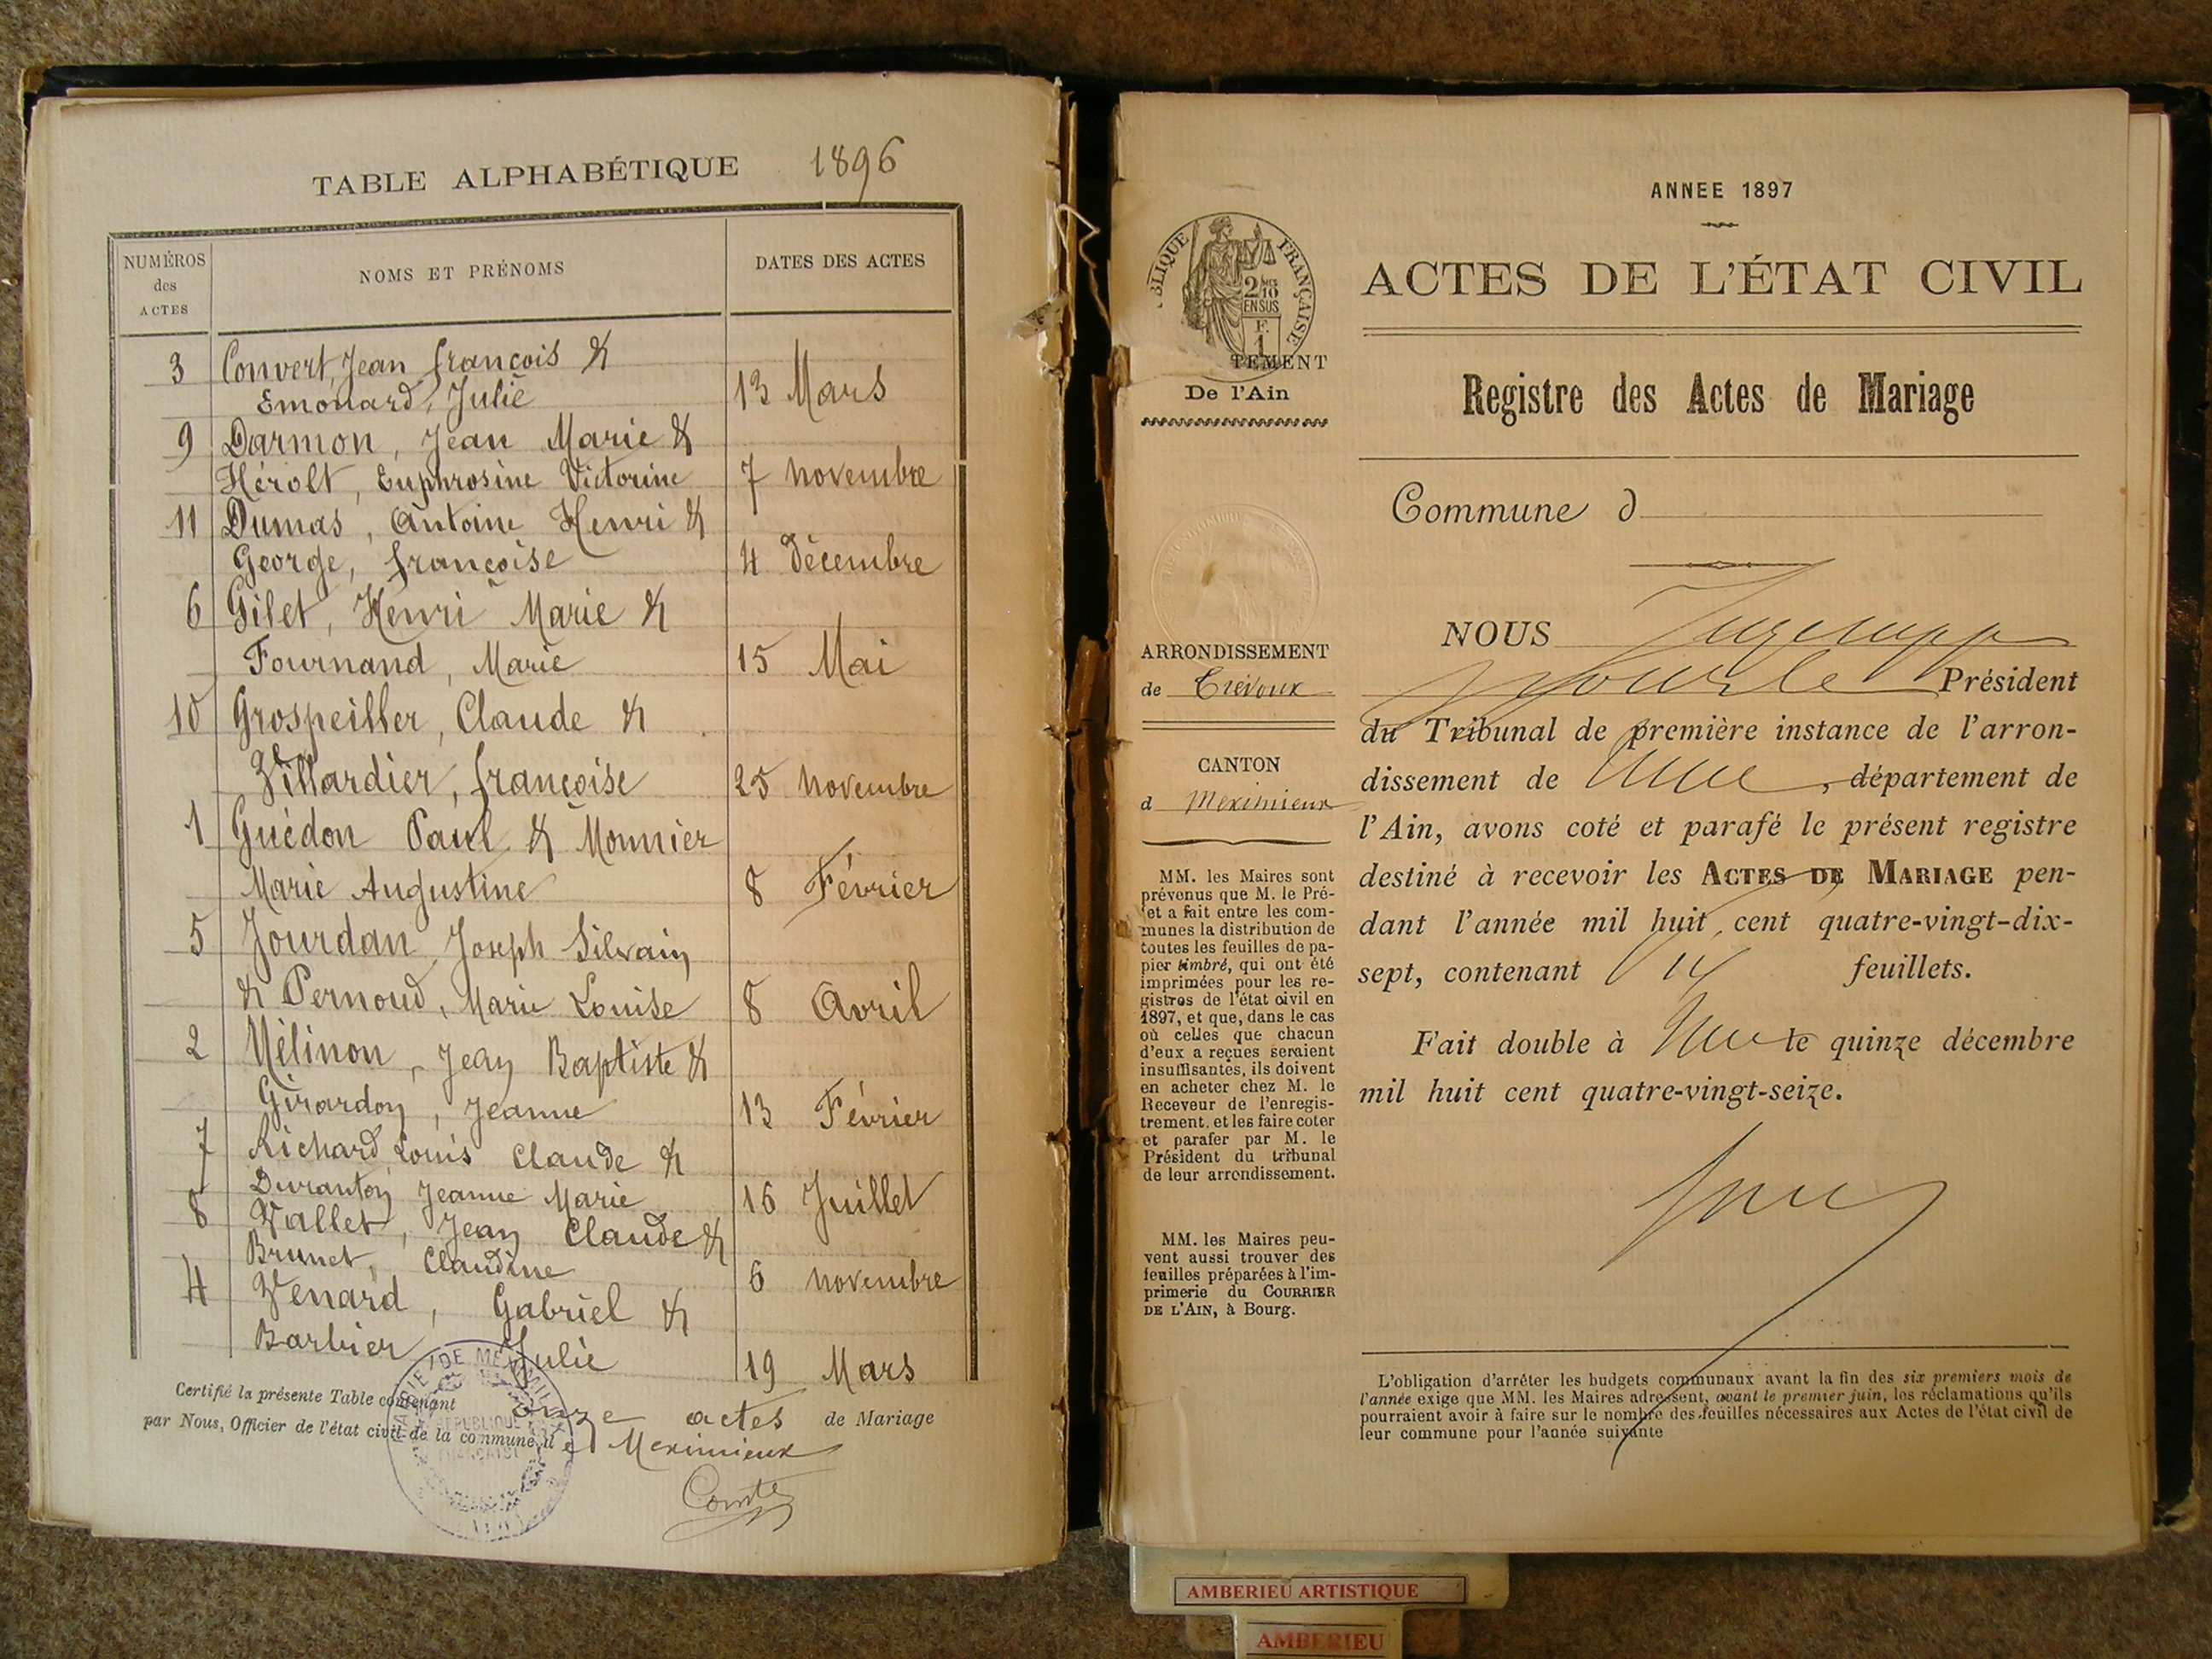 TABLE ALPHABÉTIQUE 1896
NUMÉROS des ACTES
NOMS ET PRÉNOMS
DATES DES ACTES
3 Convert, Jean François &
Emonard, Julie 13 Mars
9 Darmon, Jean Marie &
Hérolt, Euphrosine Victorine 7 Novembre
11 Dumas, Antoine Henri &
George, Françoise 4 Décembre
6 Gilet, Henri Marie &
Fournand, Marie 15 Mai
10 Grospeiller, Claude &
Villardier, Françoise 25 Novembre
1 Guédon Paul & Monnier
Marie Augustine 8 Février
5 Jourdan Joseph Silvain
& Pernoud, Marie Louise 8 Avril
2 Mélinon, Jean Baptiste &
Girardon, Jeanne 13 Février
7 Richard Louis Claude &
Duranton Jeanne Marie 16 Juillet
8 Vallet, Jean Claude &
Brunet, Claudine 6 Novembre
4 Venard, Gabriel &
Barbier Julie 19 Mars
Certifié la présente Table contenant onze actes de Mariage
par Nous, Officier de l'état civil de la commune de Meximieux
Comte
ANNEE 1897
ACTES DE L'ÉTAT CIVIL
Registre des Actes de Mariage
Commune d
BLIQUE FRANÇAISE
2/10
EN SUS
F.
1
TEMENT
De l'Ain
ARRONDISSEMENT
de Trévoux
CANTON
d Meximieux
MM. les Maires sont
prévenus que M. le Pré-
et a fait entre les com-
munes la distribution de
toutes les feuilles de pa-
pier timbré, qui ont été
imprimées pour les re-
gistres de l'état civil en
1897, et que, dans le cas
où celles que chacun
d'eux a reçues seraient
insuffisantes, ils doivent
en acheter chez M. le
Receveur de l'enregis-
trement, et les faire coter
et parafer par M. le
Président du tribunal
de leur arrondissement.
MM. les Maires peu-
vent aussi trouver des
feuilles préparées à l'im-
primerie du COURRIER
DE L'AIN, à Bourg.
NOUS
Président
du Tribunal de première instance de l'arron-
dissement de , département de
l'Ain, avons coté et parafé le présent registre
destiné à recevoir les ACTES DE MARIAGE pen-
dant l'année mil huit cent quatre-vingt-dix-
sept, contenant 14 feuillets.
Fait double à le quinze décembre
mil huit cent quatre-vingt-seize.
L'obligation d'arrêter les budgets communaux avant la fin des six premiers mois de
l'année exige que MM. les Maires adressent, avant le premier juin, les réclamations qu'ils
pourraient avoir à faire sur le nombre des feuilles nécessaires aux Actes de l'état civil de
leur commune pour l'année suivante
AMBERIEU ARTISTIQUE
AMBERIEU